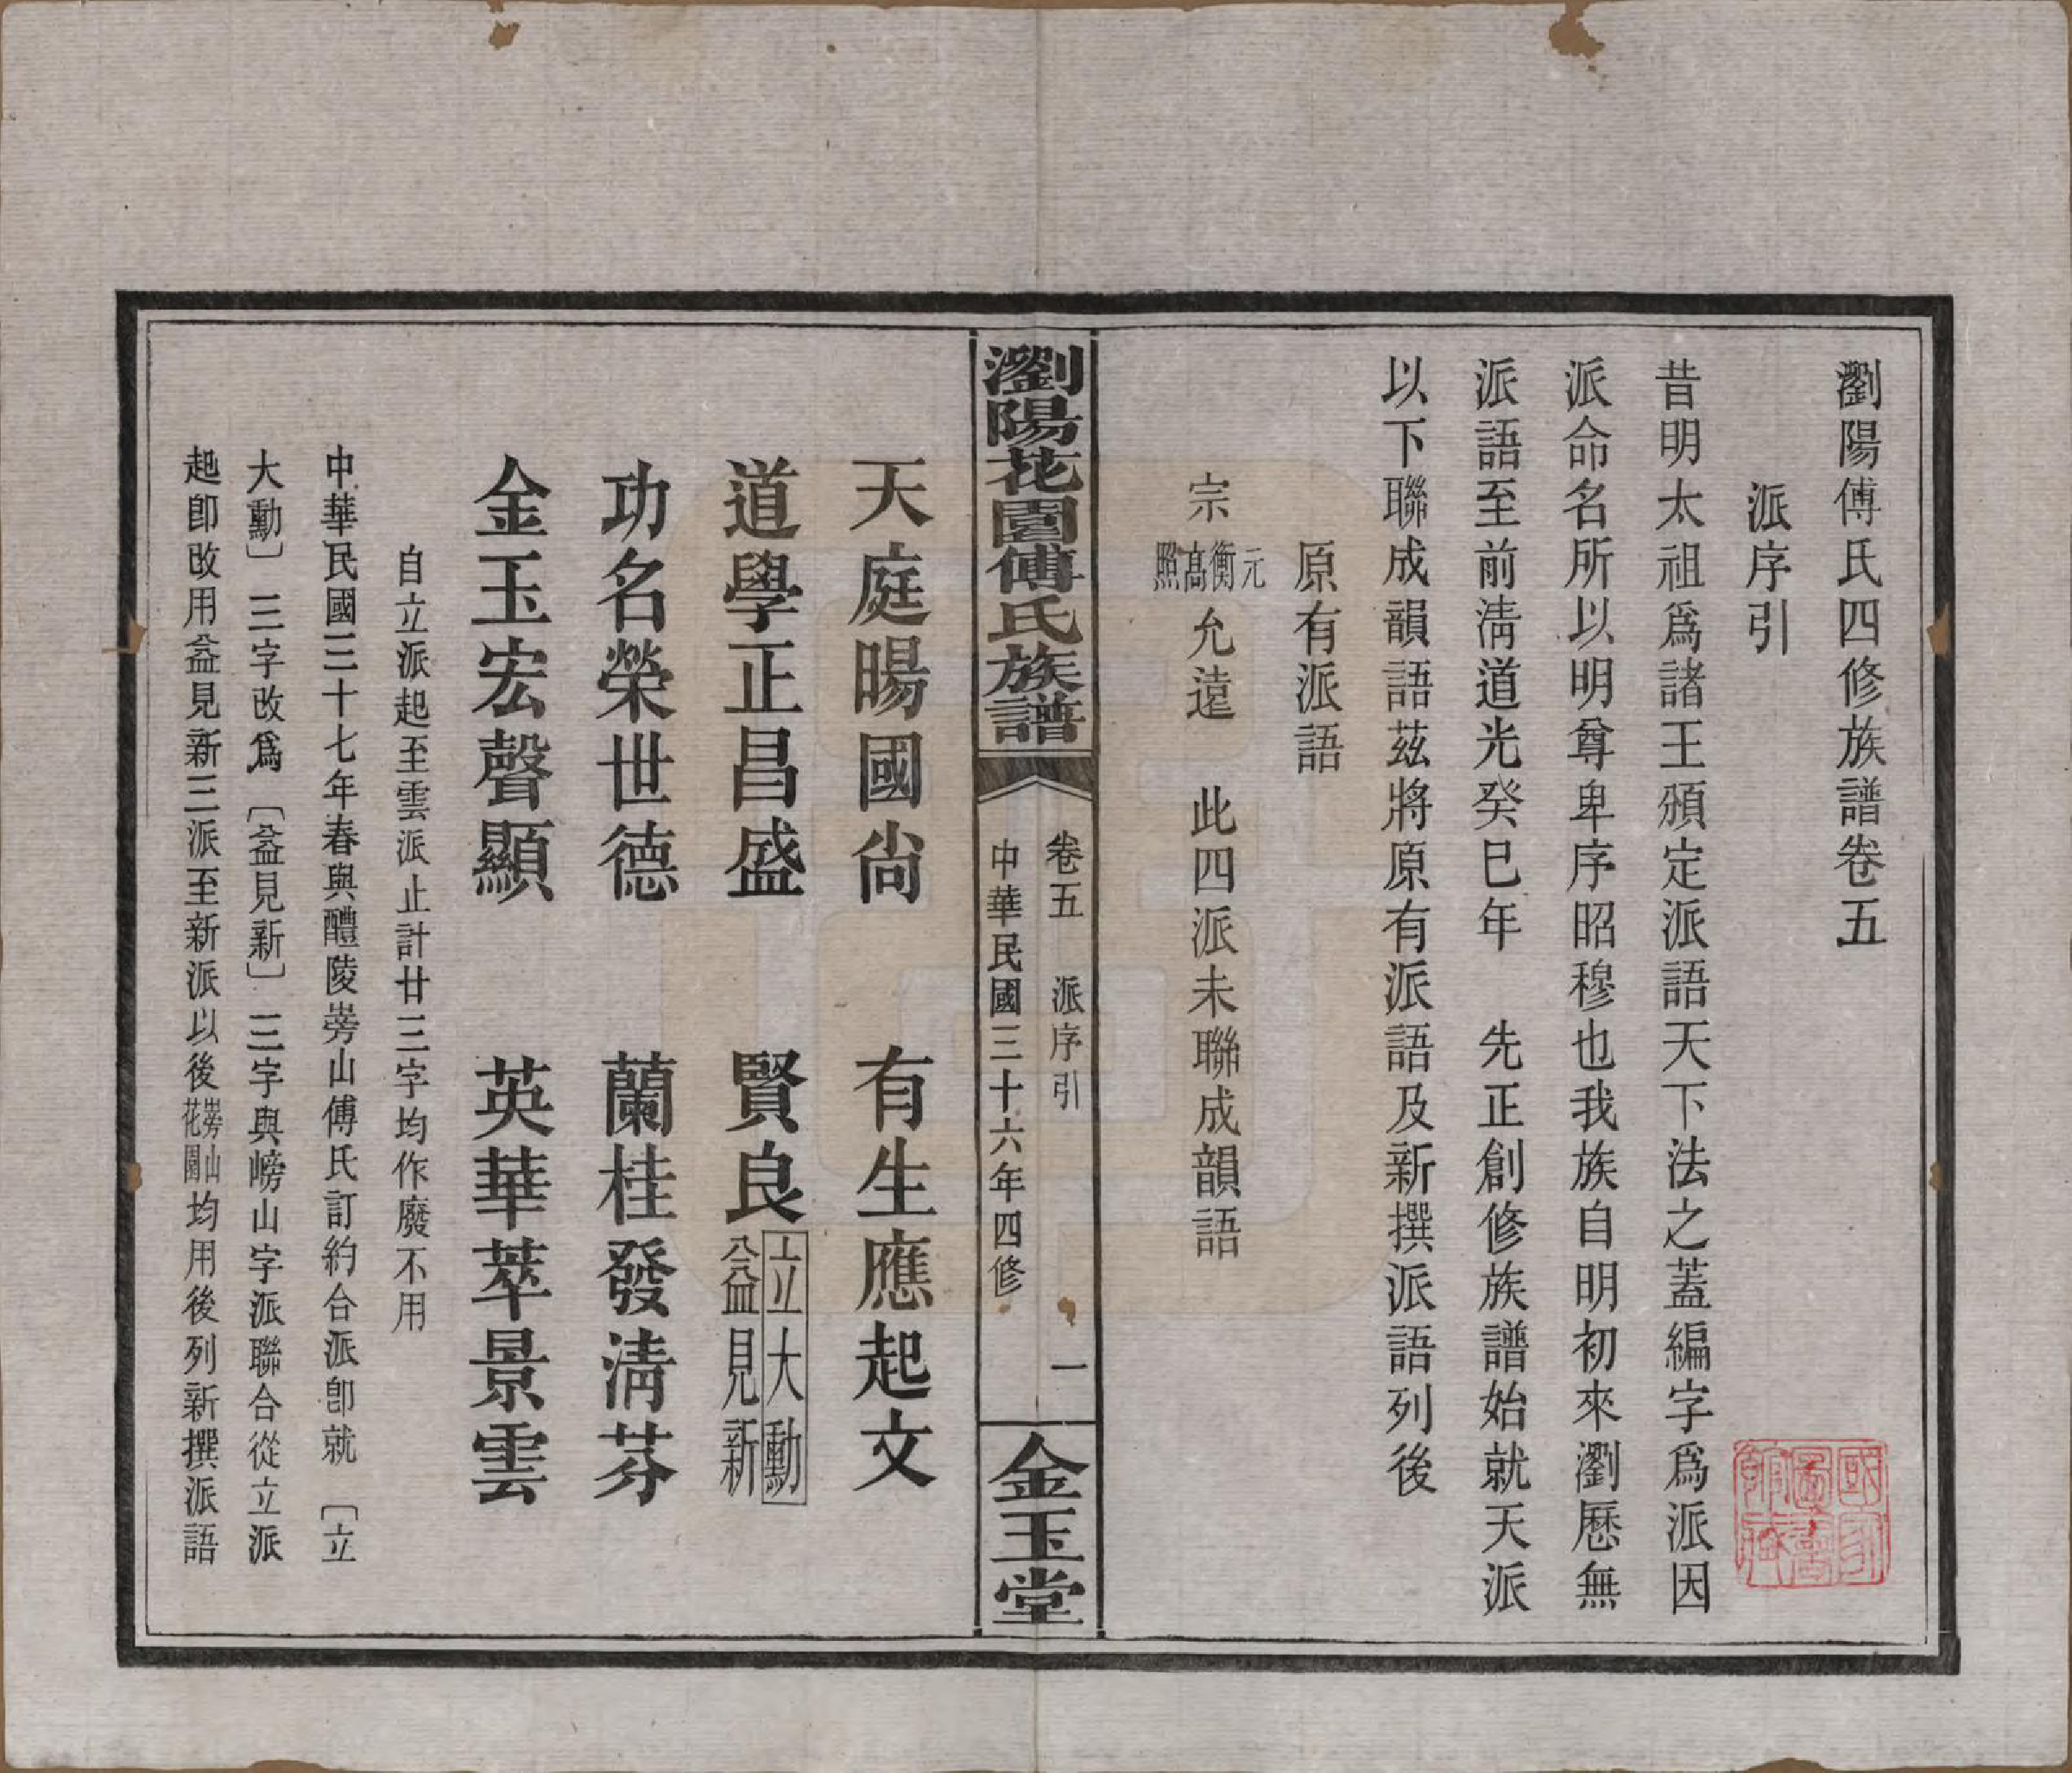 瀏陽傅氏四修族譜卷五
派序引
昔明太祖爲諸王頒定派語天下法之蓋編字爲派因
派命名所以明尊卑序昭穆也我族自明初來瀏歷無
派語至前淸道光癸巳年　先正創修族譜始就天派
以下聯成韻語茲將原有派語及新撰派語列後
原有派語
宗元衡高照允遠　此四派未聯成韻語
瀏陽花園傅氏族譜
卷五　派序引　一
中華民國三十六年四修
金玉堂
天庭暘國尙　有生應起文
道學正昌盛　賢良立大勳益見新
功名榮世德　蘭桂發淸芬
金玉宏聲顯　英華萃景雲
自立派起至雲派止計廿三字均作廢不用
中華民國三十七年春與醴陵嵭山傅氏訂約合派卽就〔立
大勳〕三字改爲〔益見新〕三字與嵭山字派聯合從立派
起卽改用益見新三派至新派以後嵭山花園均用後列新撰派語